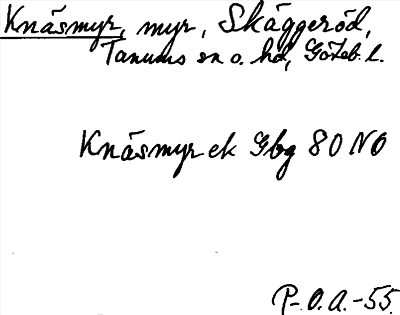 Knäsmyr, myr, Skäggeröd,
Tanums sn o. hd, Göteb. l.
Knäsmyr ek Gbg 80 NO
P-.O.A.-55.